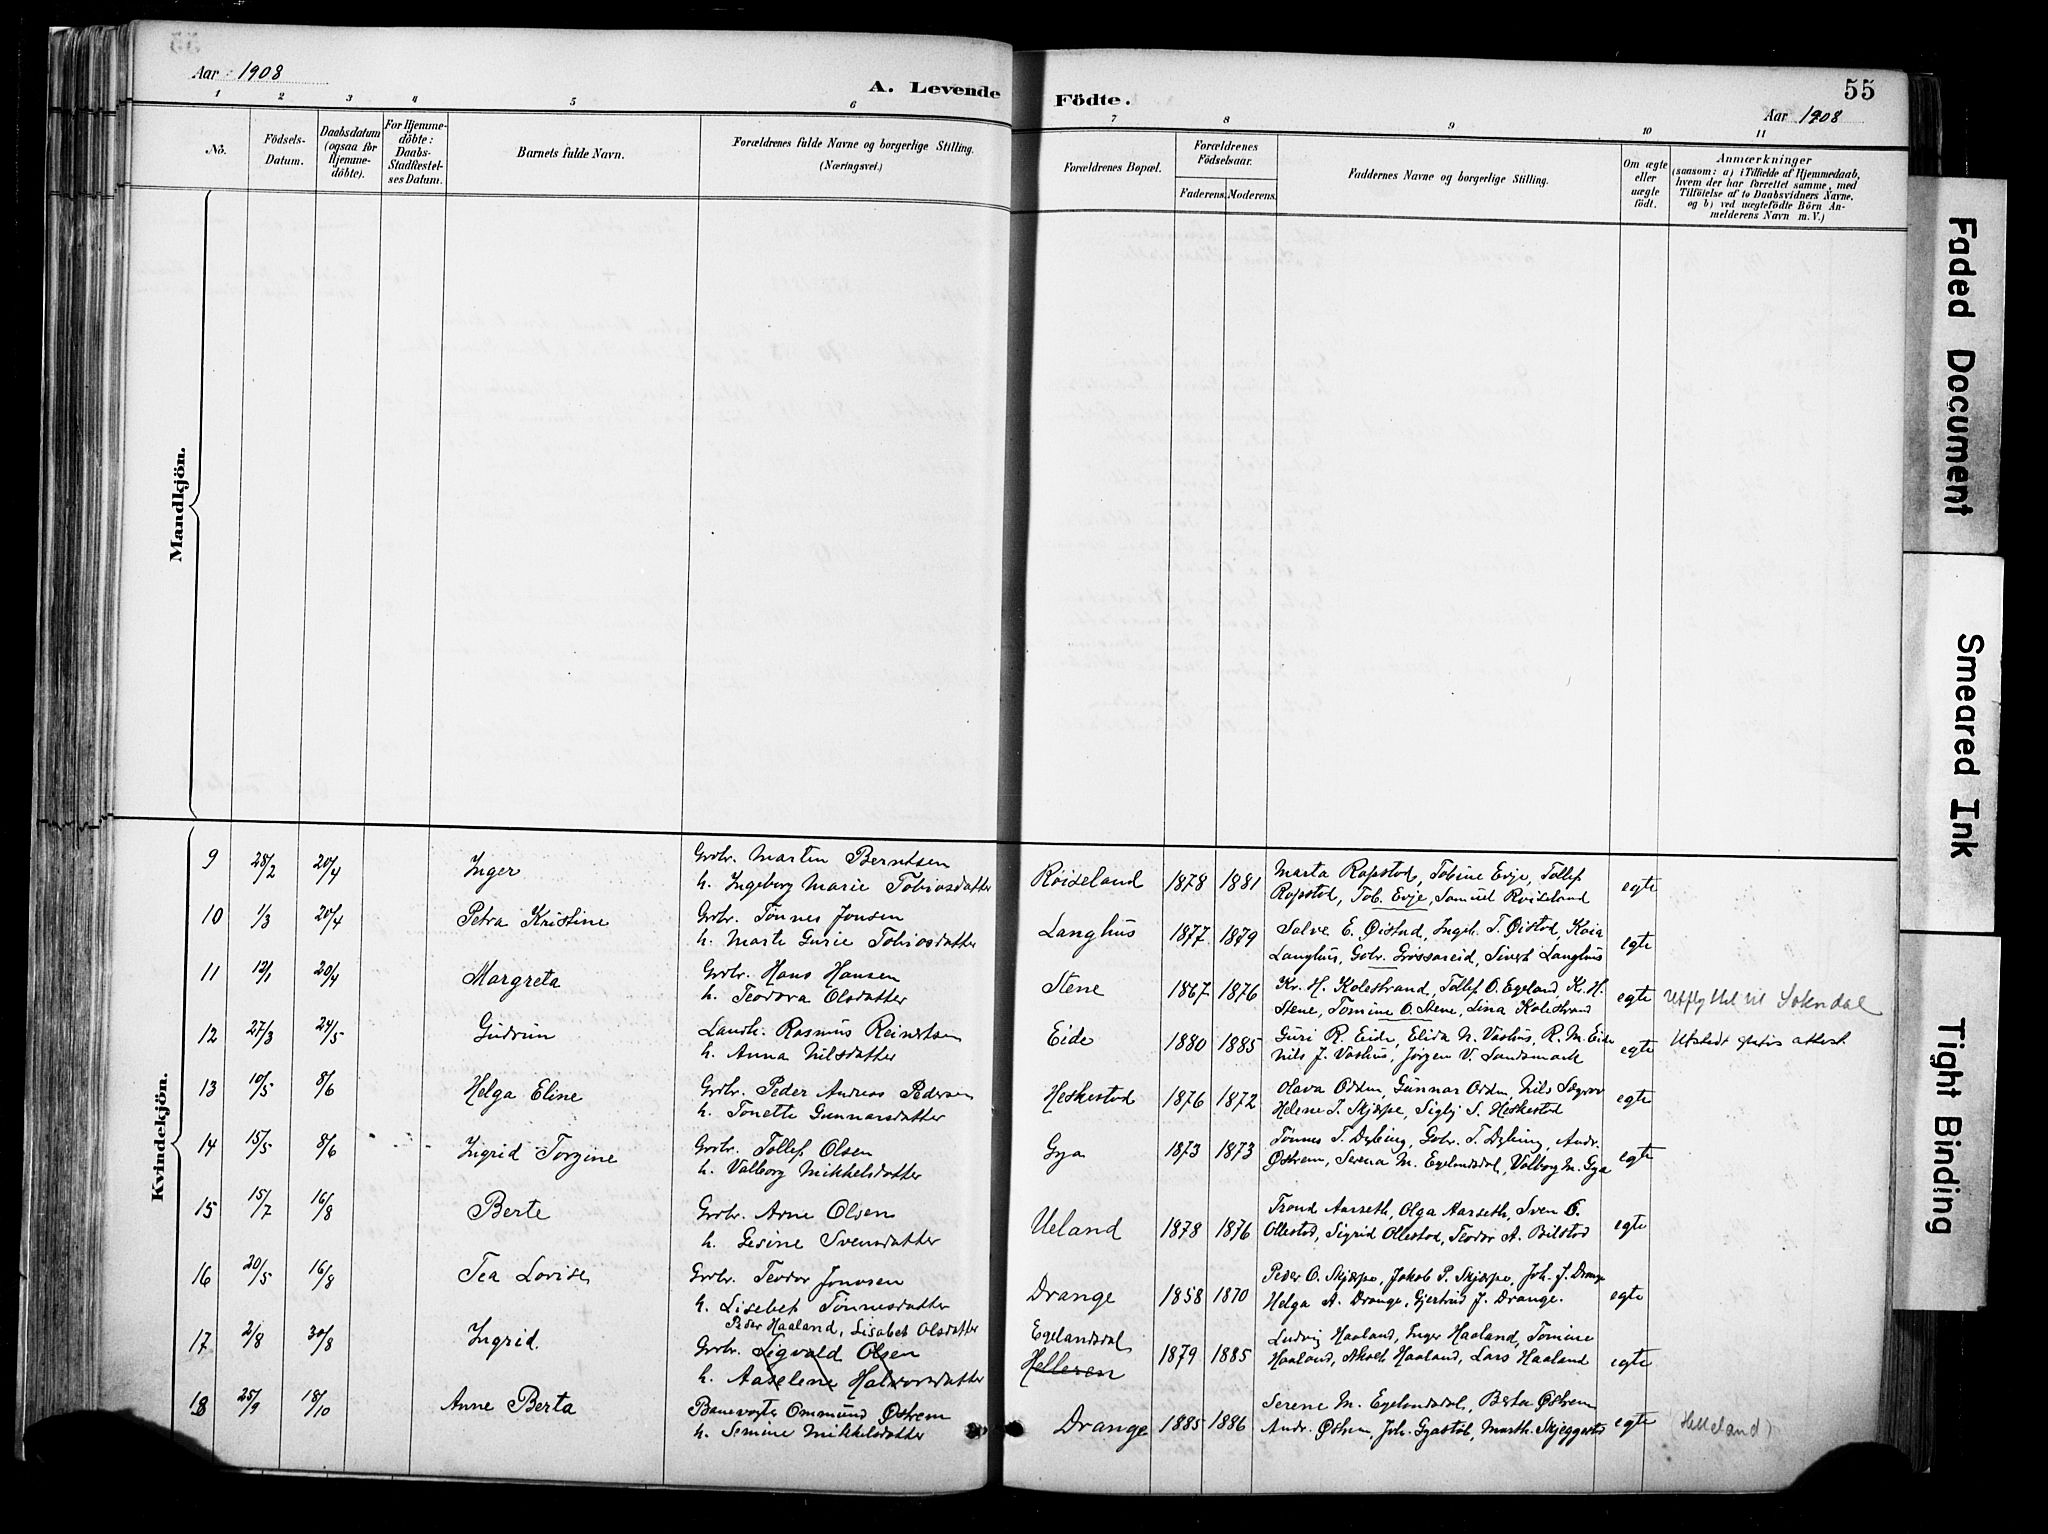 55
Aar 1908
A. Levende Födte.
Aar 1908
1 2 3 4 5 6 7 8 9 10 11
No.
Födsels-
Datum.
Daabsdatum
(ogsaa for
Hjemme-
döbte).
For Hjemme-
döbte:
Daabs-
Stadfæstel-
ses Datum.
Barnets fulde Navn.
Forældrenes fulde Navne og borgerlige Stilling.
(Næringsvei.)
Forældrenes Bopæl.
Forældrenes
Födselsaar.
Faderens. Moderens.
Faddernes Navne og borgerlige Stilling.
Om ægte
eller
uægte
födt.
Anmærkninger
(saasom: a) i Tilfælde af Hjemmedaab,
hvem der har forrettet samme, med
Tilföielse af to Daabsvidners Navne,
og b) ved uægtefödte Börn An-
melderens Navn m. V.)
Mandkjön.
Kvindekjön.
9 28/2 20/4 Inger Grbr. Martin Berntsen
h. Ingeborg Marie Tobiasdatter Røiseland 1878 1881 Marta Rapstad, Tobine Evje, Tollef
Rapstad, Tob. Evje, Samuel Røiseland egte
10 1/3 20/4 Petra Kristine Grbr. Tønnes Jonsen
h. Marte Gurie Tobiasdatter Langhus 1877 1879 Salve E. Øistad, Ingeb. T. Øistad, Kaia
Langhus, Gabr. Grøssareid, Sivert Langhus egte
11 12/1 20/4 Margreta Grbr. Hans Hansen
h. Teodora Olsdatter Stene 1867 1876 Kr. H. Kolestrand, Tollef O. Egeland, Kr. H.
Stene, Tomine O. Stene, Lina Kolestrand egte Utflyttet til Sokndal
12 27/3 24/5 Gudrun Landh. Rasmus Reinertsen
h. Anna Nilsdatter Eide 1880 1885 Guri R. Eide, Elida N. Vashus, R. M. Eide
Nils J. Vashus, Jørgen V. Landsmark egte Utstedt gratis attest
13 10/5 8/6 Helga Eline Grbr. Peder Andreas Pedersen
h. Tonette Gunnarsdatter Heskestad 1876 1872 Olava Odden, Gunnar Odden, Nils Sægrov
Helene T. Skjæpe, Sigbj. S. Heskestad egte
14 15/5 8/6 Ingrid Torgine Grbr. Tollef Olsen
h. Valborg Mikkelsdatter Gya 1873 1873 Tønnes T. Dybing, Gabr. T. Dybing, Andr.
Østrem, Serena M. Egelandsdal, Valborg M. Gya egte
15 15/7 16/8 Berte Grbr. Arne Olsen
h. Gesine Svensdatter Ueland 1878 1876 Trond Aarseth, Olga Aarseth, Sven O.
Ollestad, Sigrid Ollestad, Teodor A. Bilstad egte
16 20/5 16/8 Tea Lovise Grbr. Teodor Jonassen
h. Lisabet Tønnesdatter Drange 1858 1870 Peder O. Skjæpe, Jakob P. Skjæpe, Joh. J. Drange
Helga A. Drange, Gjertrud J. Drange. egte
17 2/8 30/8 Ingrid. Peder Haaland, Lisabet Olsdatter
Grbr. Sigvald Olsen
h. Aaselene Halvorsdatter Egelandsdal
Helleren 1879 1885 Ludvig Haaland, Inger Haaland, Tomine
Haaland, Haaland, Lars Haaland egte
18 25/9 18/10 Anne Berta Banevogter Ommund Østrem
h. Semine Mikkelsdatter Drange 1885 1886 Serene M. Egelandsdal, Berta Østrem
Andr. Østrem, Joh. Gyastøl, Marth. Skjeggestad egte (Helleland)
Faded Document
Smeared Ink
Tight Binding